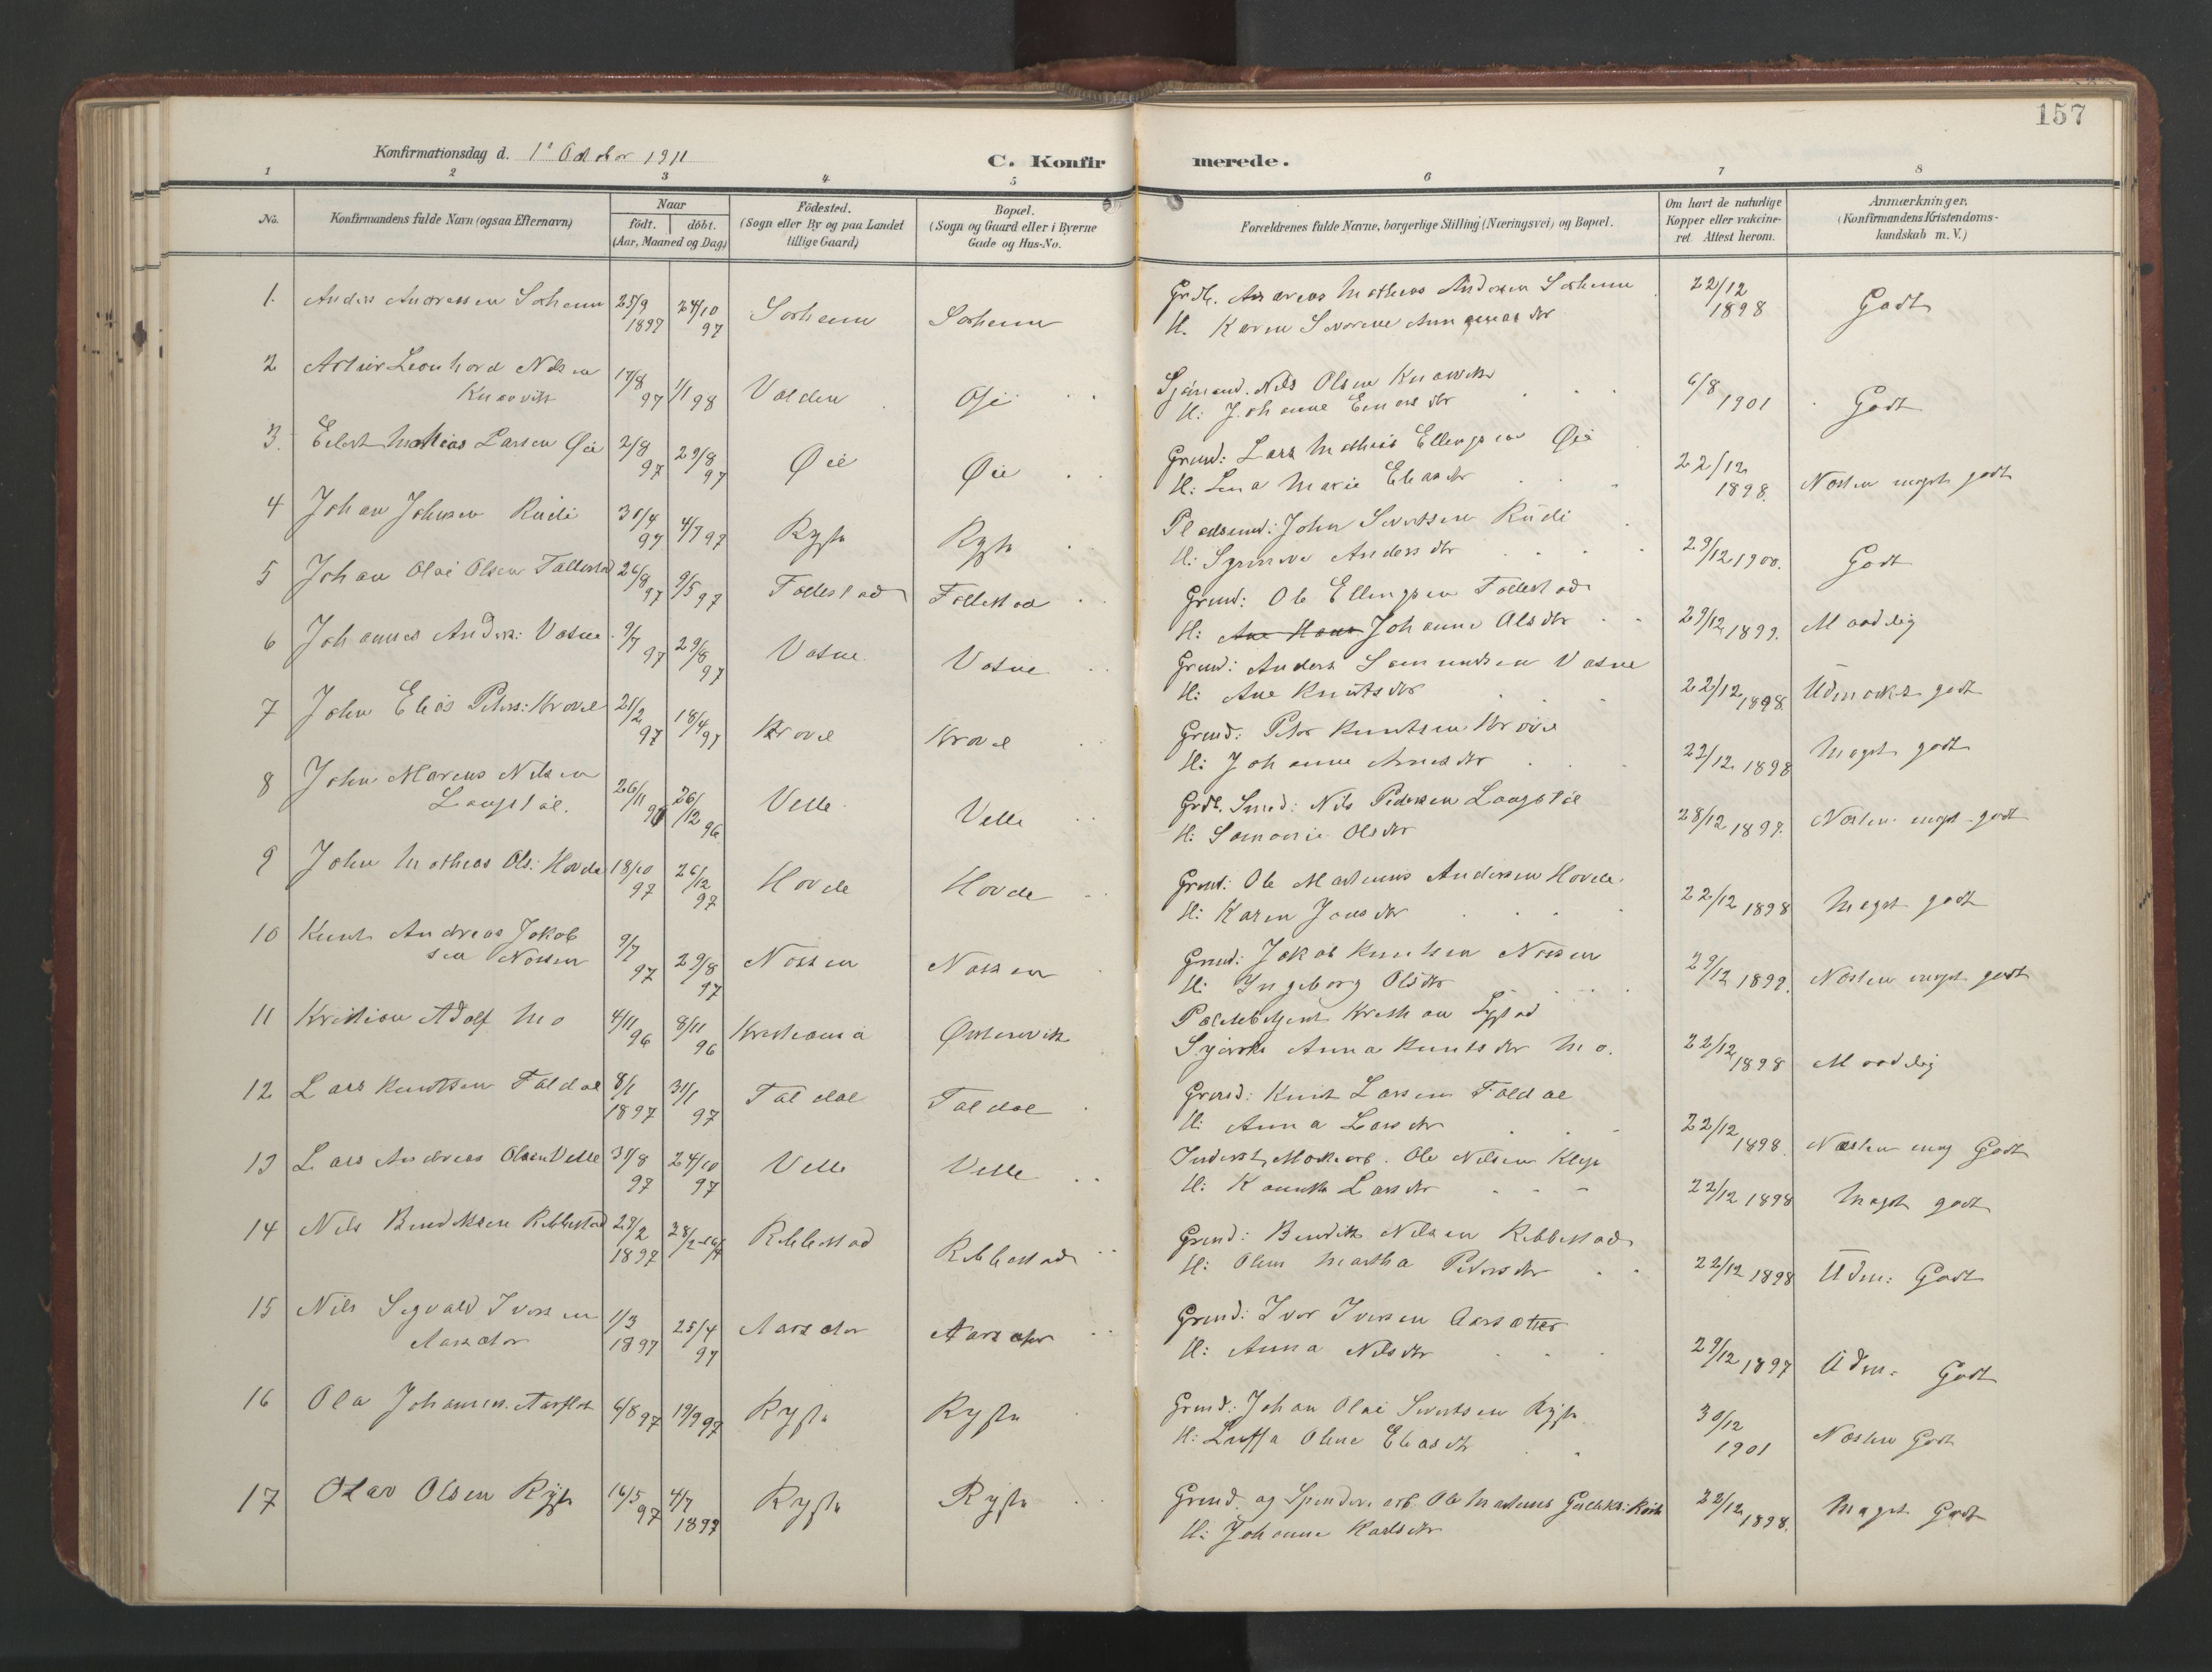 157
Konfirmationsdag d. 1ste October 1911
C. Konfirmerede.
1 2 3 4 5 6 7 8
No.
Konfirmandens fulde Navn (ogsaa Efternavn)
Naar
födt. döbt.
(Aar, Maaned og Dag)
Födested.
(Sogn eller By og paa Landet
tillige Gaard)
Bopæl.
(Sogn og Gaard eller i Byerne
Gade og Hus-No.
Forældrenes fulde Navne, borgerlige Stilling (Næringsvei) og Bopæl.
Om havt de naturlige
Kopper eller vakcine-
ret. Attest herom.
Anmærkninger.
(Konfirmandens Kristendoms-
kundskab m. V.)
1. Anders Andreassen Sørheim 25/9 1897 24/10 97 Sørheim Sørheim
Grdbr. Andreas Matheus Andersen Sørheim
H. Karen Severine
22/12 1898 Godt
2 Artur Leonhard Nilsen
Knarvik 17/8 97 1/1 98 Volden Øie
Sjømand. Nils Olsen Knarvik
H: Johanne Einarsdtr
6/8 1901 Godt
3. Eilert Mathias Larsen Øie 2/8 97 29/8 97 Øie Øie
Grmd: Lars Mathias Ellingsen Øie
H: Lina Marie Eliasdtr
22/12 1898. Næsten meget godt
4 Johan Johnsen Rudi 30/4 97 4/7 97 Rysta Rysta
Pladsmd: John Sivertsen Rudi
H: Synneve Andersdtr
29/12 1900. Godt
5 Johan Olai Olsen Follestad 26/8 97 9/5 97 Follestad Follestad
Grmd: Ole Ellingsen Follestad
H: Ane Hans Johanne Olsdtr
29/12 1899. Maadelig
6 Johannes Anders: Vatne 9/7 97 29/8 97 Vatne Vatne
Grmd: Anders Samundsen Vatne
H: Ane Knutsdtr
22/12 1898. Udmerket godt
7 John Elias Peters: Krøvel 21/2 97 18/4 97 Krøvel Krøvel
Grmd: Peter Knutsen Krøvel
H: Johanne Arnesdtr
22/12 1898 Meget godt
8 John Marcus Nilsen
Langstøl. 26/11 96 26/12 96 Velle Velle
Grdb. Smed: Nils Pedersen Langstøl
H: Samarie Olsdtr
28/12 1897. Næsten meget godt
9 John Matheas Ols: Hovde 18/10 97 26/12 97 Hovde Hovde
Grmd: Ole Martinus Andersen Hovde.
H: Karen Jonsdtr
22/12 1898 Meget godt
10 Knut Andreas Jakob
sen Nøssen 9/7 97 29/8 97 Nøssen Nøssen
Grmd: Jakob Knutsen Nøssen
H: Ingeborg Olsdtr
29/12 1899. Næsten meget godt
11 Kristian Adolf Mo 4/11 96 8/11 96 Kristiania Ørstenvik
Politibetjent Kristian
Syerske Anna Knutsdtr Mo.
22/12 1898 Maadelig
12 Lars Knutsen Foldal 8/1 1897 31/1 97 Foldal Foldal
Grmd: Knut Larsen Foldal
H: Anna Larsdtr
22/12 1898. Næsten meg Godt
13 Lars Andreas Olsen Velle 31/8 97 24/10 97 Velle Velle
Inderst, Ole Nilsen Klep
H: Larsdtr
22/12 1898 Meget godt
14 Nils Bendiksen Ribbestad 23/2 1897 28/2 Ribbestad Ribbestad
Grmd: Bendik Nilsen Ribbestad
H: Oline Martha Pedersdtr
22/12 1898 Udm: Godt
15 Nils Sigvald Iversen
Aarsæter 1/3 1897 25/4 97 Aarsæter Aarsæter
Grmd: Iver Iversen Aarsæter
H: Anna Nilsdtr
29/12 1897 Udm: Godt
16 Ola Johannes. Aarflot 6/8 97 19/9 97 Rysta Rysta
Grmd: Johan Olai Sivertsen Rysta
H: Luffa Oline Eliasdtr
30/12 1901 Næsten Godt
17 Olav Olsen Rysta 16/5 97 4/7 1897 Rysta Rysta
Grmd. og Ole Martinus
H: Johanne Karlsdtr
22/12 1898. Meget Godt